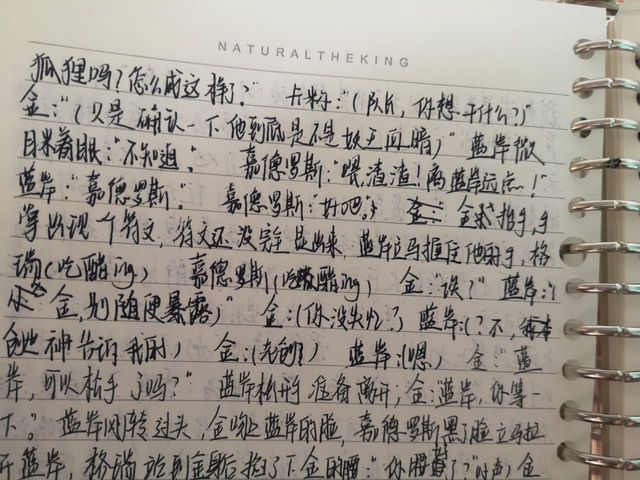 NATURALTHEKING
狐狸吗?怎么成这样了?" 卡米尔:"(队长,你想干什么?)"
金:"(只是确认一下他到底是不是妖王阿暗)" 蓝岸微
目米着眼:"不知道。" 嘉德罗斯:"喂,渣渣!离蓝岸远点!"
蓝岸:"嘉德罗斯。" 嘉德罗斯:"好吧。" 金抬手,手
掌出现个符文,符文还没完全显出来,蓝岸立马握住他的手,格
瑞(吃醋ing) 嘉德罗斯(吃醋ing) 金:"诶?" 蓝岸:"(
金,别随便暴露)" 金:(你没失忆?) 蓝岸:(?不,
创世神告诉我的) 金:( ) 蓝岸:(嗯) 金:"蓝
岸,可以松手了吗?" 蓝岸松开手准备离开;金:"蓝岸,你等一
下。" 蓝岸刚转过头,金吻上蓝岸的脸,嘉德罗斯黑了脸立马拉
开蓝岸,格瑞站到金身后掐了下金的腰:"你 了?" 金